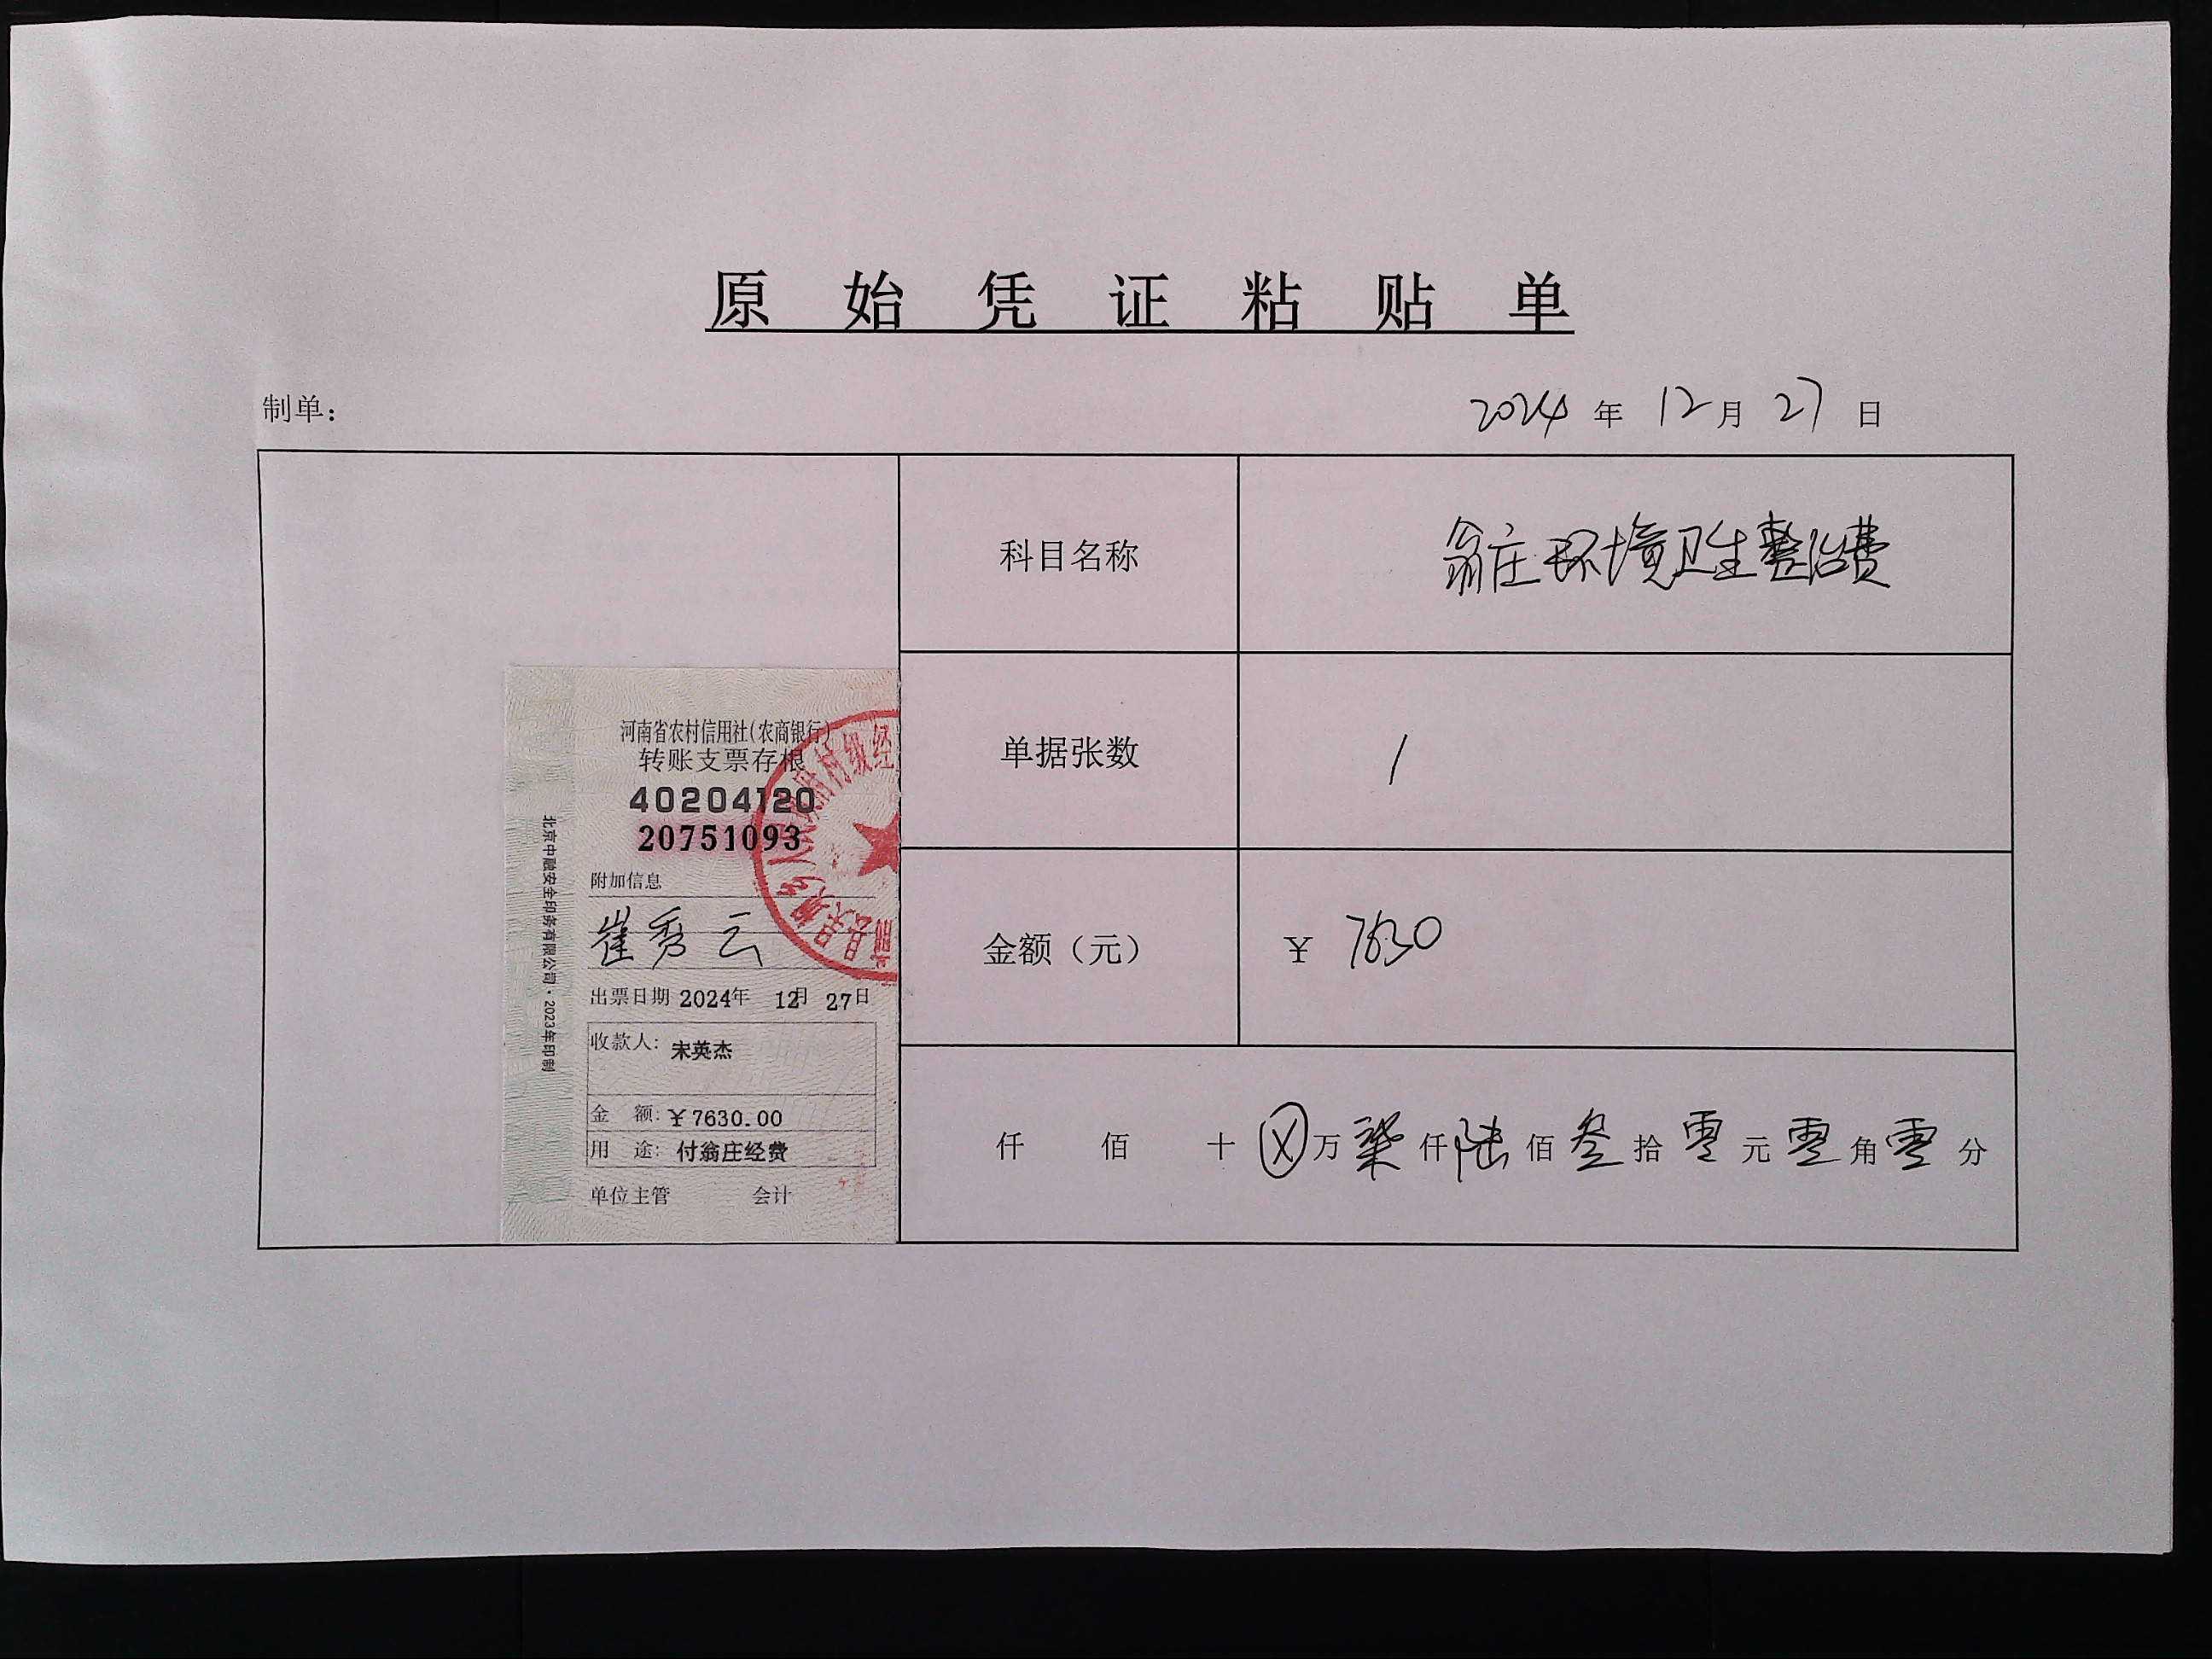 原始凭证粘贴单
制单：
2024年12月27日
科目名称
翁庄环境卫生整治费
单据张数
1
金额（元）
￥ 7630
仟 佰 十 ⓧ万 柒仟 陆佰 叁拾 零元 零角 零分
河南省农村信用社(农商银行)
转账支票存根
40204120
20751093
附加信息
崔秀云
出票日期 2024年 12月 27日
收款人: 宋英杰
金 额: ￥7630.00
用 途: 付翁庄经费
单位主管 会计
北京中融安全印务有限公司·2023年印制
村级经